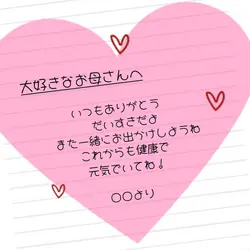 大好きなお母さんへ
いつもありがとう
だいすきだよ
また一緒にお出かけしようね
これからも健康で
元気でいてね！
○○より